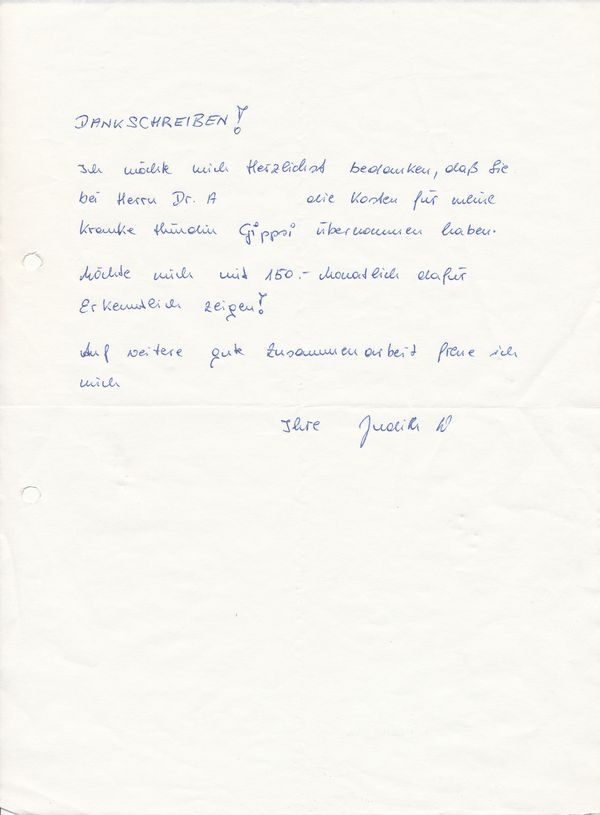 DANKSCHREIBEN!
Ich möchte mich Herzlichst bedanken, daß Sie
bei Herrn Dr. A die Kosten für meine
kranke Hündin Gippsi übernommen haben.
Möchte mich mit 150.- Monatlich dafür
Erkenntlich zeigen!
Auf weitere gute Zusammenarbeit freue ich
mich
Ihre Judith W